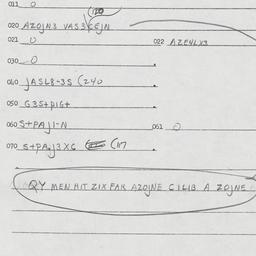 011 0
020 AZOJN3 VAS3CEJN (120
021 0 022 AZENLX3
030 0
040 JASL8-3S (240
050 G3S+PIG+
060 S+PAJ1-N 061 0
070 S+PAJ3XG (117
QY MEN HIT ZIX FAK AZOJNE CILIB A ZOJNE